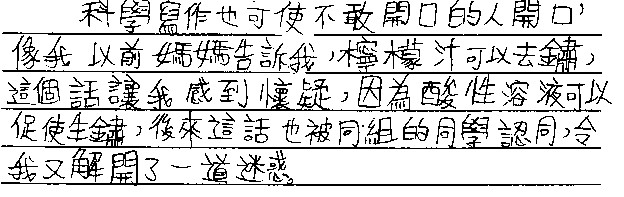 科學寫作也可使不敢開口的人開口，
像我以前媽媽告訴我，檸檬汁可以去鏽，
這個話讓我感到懷疑，因為酸性溶液可以
促使生鏽，後來這話也被同組的同學認同，令
我又解開了一道迷惑。